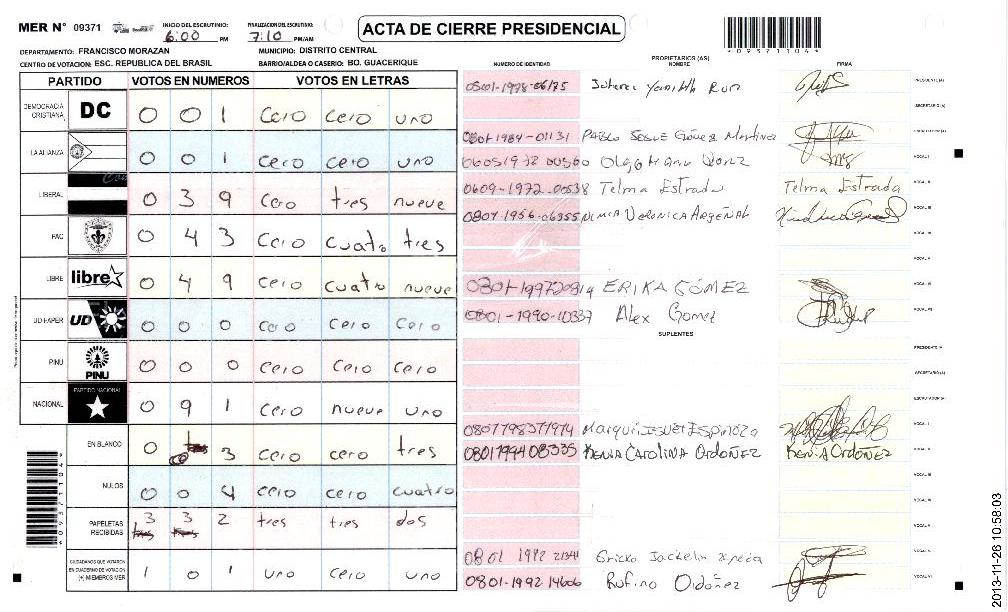 MER N° 09371 INICIO DEL ESCRUTINIO: 6:00 PM FINALIZACION DEL ESCRUTINIO: 7:10 PM/AM
ACTA DE CIERRE PRESIDENCIAL
093711041
DEPARTAMENTO: FRANCISCO MORAZAN MUNICIPIO: DISTRITO CENTRAL
CENTRO DE VOTACION: ESC. REPUBLICA DEL BRASIL BARRIO/ALDEA O CASERIO: BO. GUACERIQUE
PARTIDO VOTOS EN NUMEROS VOTOS EN LETRAS
DEMOCRACIA CRISTIANA DC 0 0 1 cero cero uno
LA ALIANZA 0 0 1 cero cero uno
LIBERAL 0 3 9 cero tres nueve
PAC 0 4 3 cero cuatro tres
LIBRE libre 0 4 9 cero cuatro nueve
UD-FAPER UD 0 0 0 cero cero cero
PINU PINU 0 0 0 cero cero cero
NACIONAL PARTIDO NACIONAL 0 9 1 cero nueve uno
EN BLANCO 0 0 3 cero cero tres
NULOS 0 0 4 cero cero cuatro
PAPELETAS RECIBIDAS 3 3 2 tres tres dos
CIUDADANOS QUE VOTARON EN CUADERNO DE VOTACION (+) MIEMBROS MER 1 0 1 uno cero uno
PROPIETARIOS (AS)
NUMERO DE IDENTIDAD NOMBRE FIRMA
0801-1978-06175 PRESIDENTE (A)
SECRETARIO (A)
0801-1984-01131 PABLO Gómez Martinez
VOCAL I
Telma Estrada Telma Estrada VOCAL II
0801-1956-06355 VERONICA ARGEÑAL VOCAL III
VOCAL IV
VOCAL V
ERIKA GÓMEZ VOCAL VI
0801-1990-10337 Alex Gomez VOCAL VII
SUPLENTES
PRESIDENTE (A)
SECRETARIO (A)
ESCRUTADOR (A)
Espinoza VOCAL I
0801199408335 KENIA CAROLINA ORDOÑEZ KENIA ORDOÑEZ VOCAL II
VOCAL III
VOCAL IV
VOCAL V
0801 1982
0801-1992-14606 Rufino Ordoñez VOCAL VII
2013-11-26 10:58:03